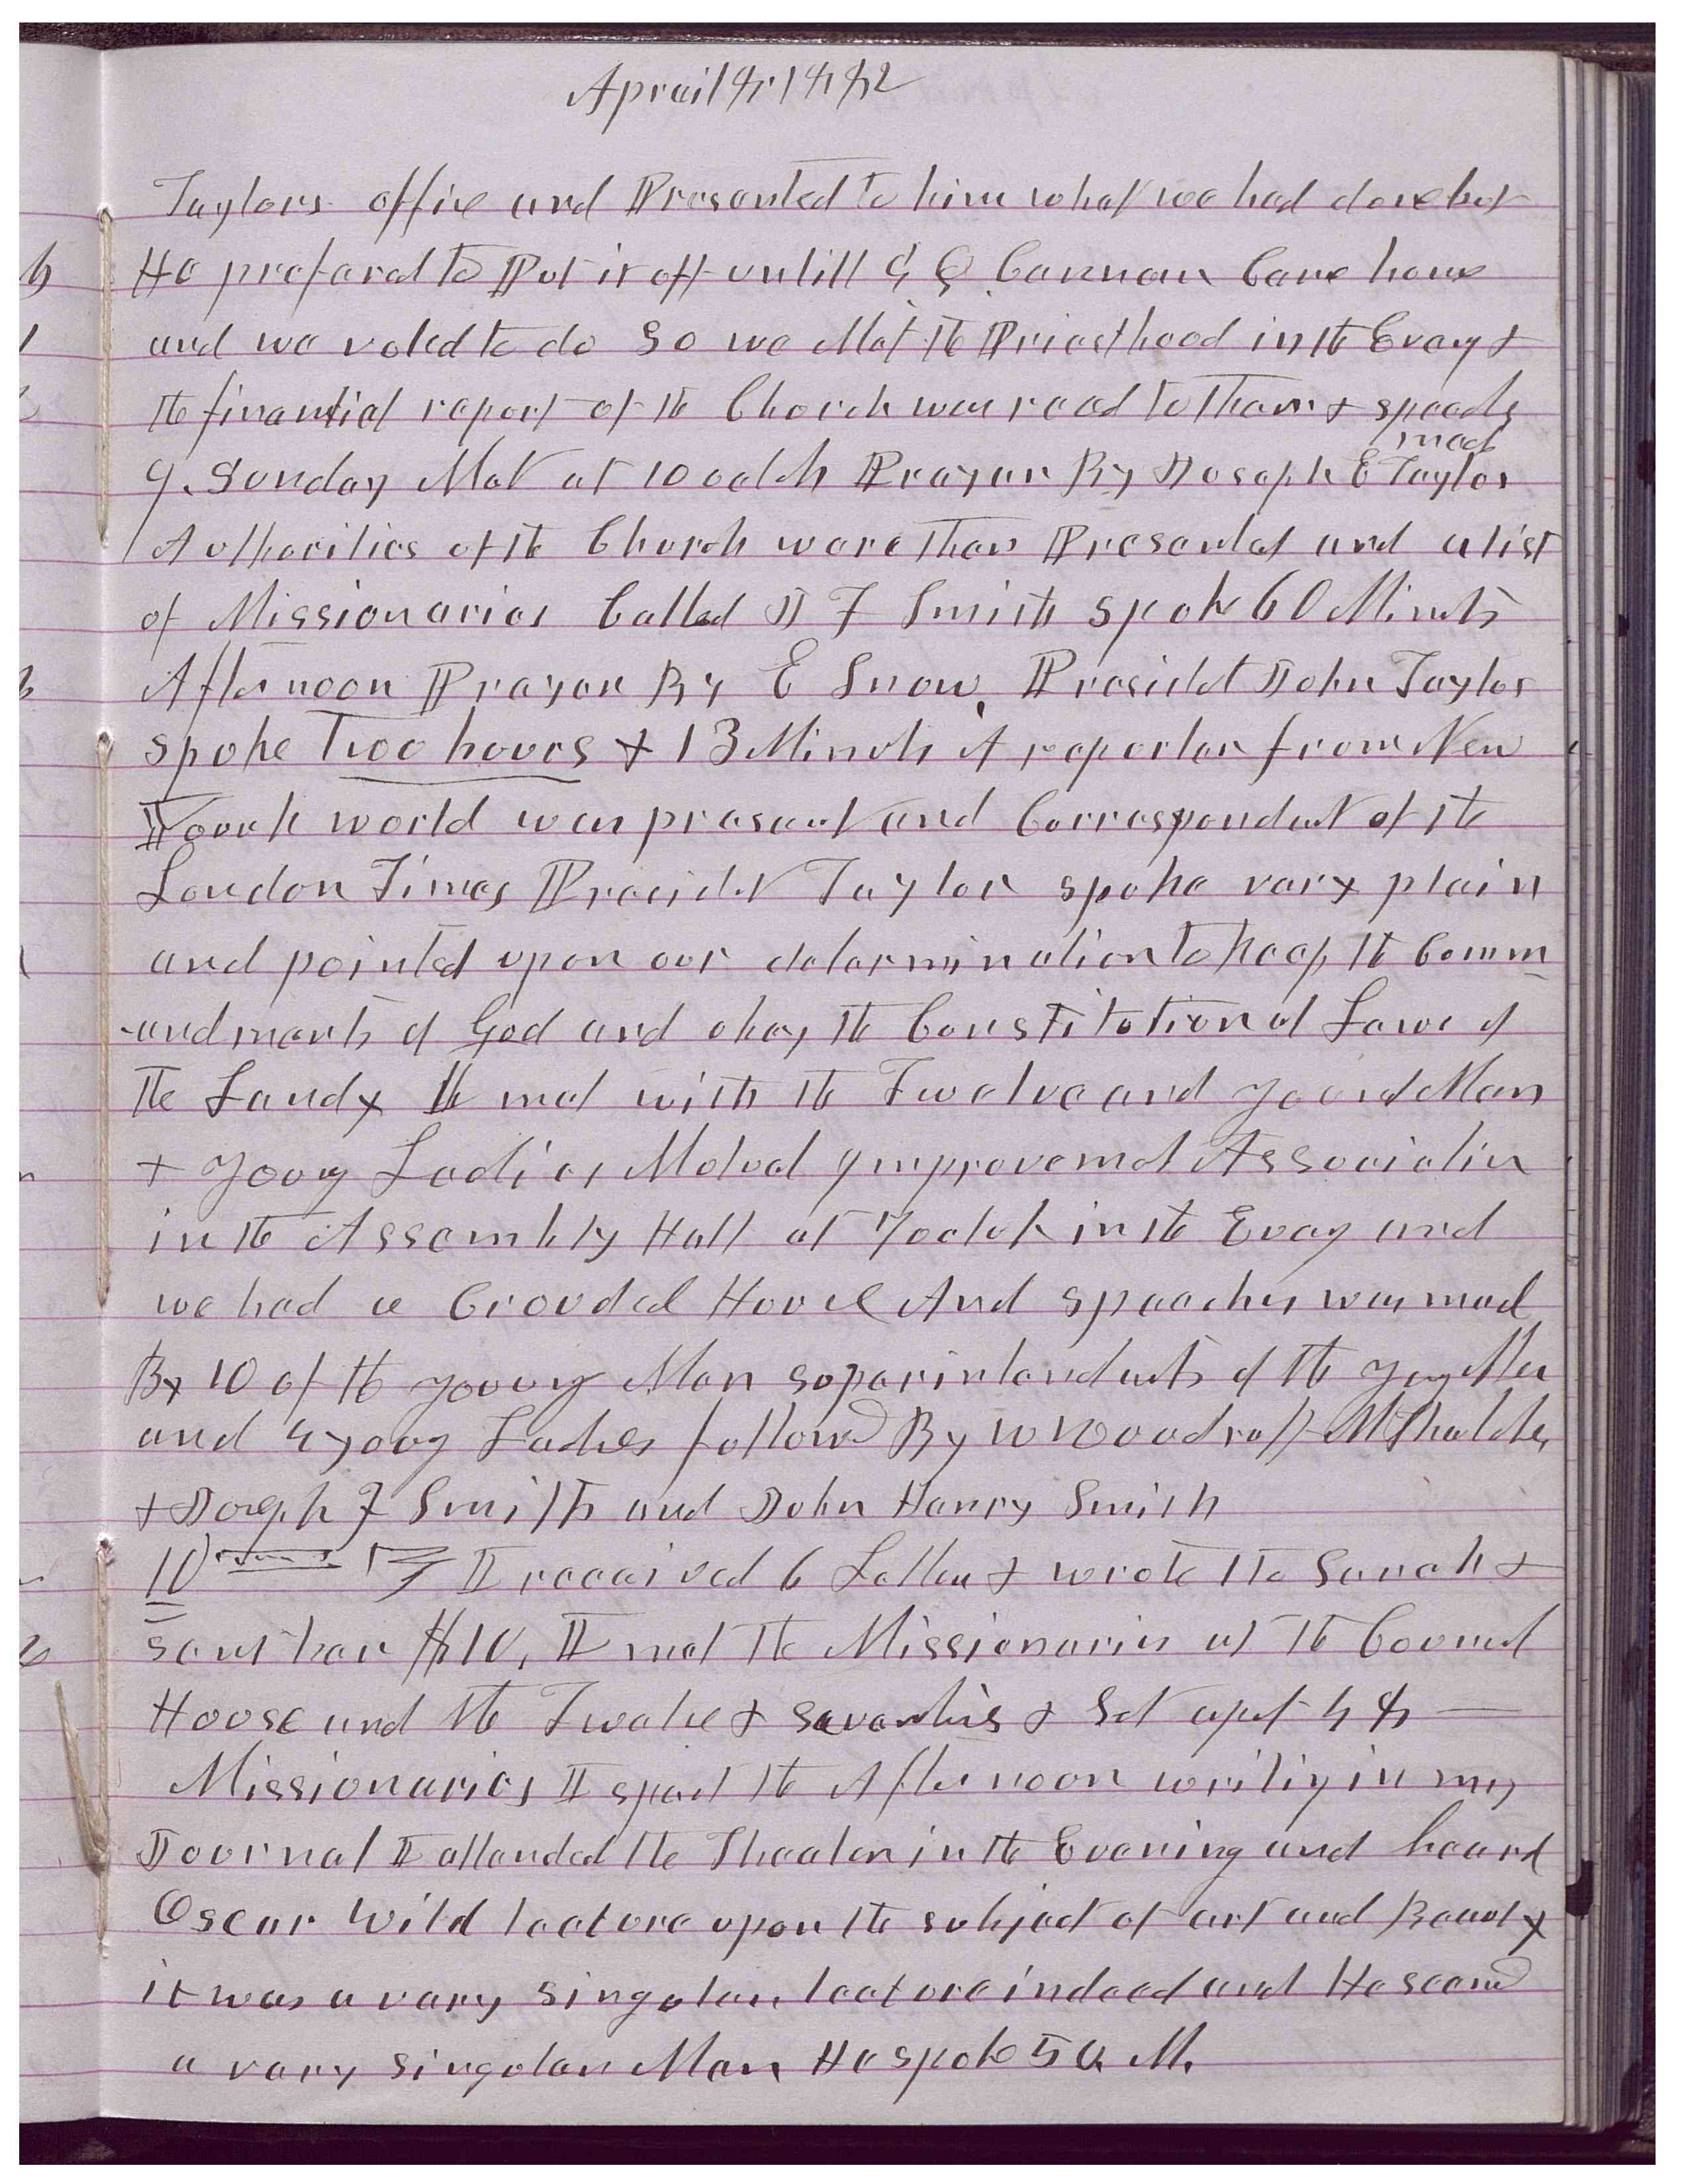 Aprail 8, 1882
Taylors office and Presented to him what we had done but
He prefered to Put it off untill G Q Cannon Came home
and we voted to do So we Met the Priesthood in the Eveng &
the financial report of the Church was read to them & speech
mad
9. Sunday Met at 10 oclok Prayer By Joseph E Taylor
Authorities of the Church were then Presented and a list
of Missionaries Called J F Smith spok 60 Minuts
Afternoon Prayer By E Snow, Presidet John Taylor
spoke Two hours & 13 Minuts A reporter from New
Yourk world was present and Correspondent of the
London Times Presidet Taylor spoke very plain
and pointed upon our determination to keep the Comm
-andments of God and obey the Constitutional Laws of
the Land & met with the Twelve and Men
& Young Ladies Mutual Improvemet Association
in the Assembly Hall at 7 oclok in the Eveng and
we had a Crouded House And speeches was mad
By 10 of the young Men superintendents of the Yung Men
and 4 young Ladies followed By W Woodruff M Thatcher
& Joseph F Smith and John Henry Smith
10 I received 6 Letters & wrote 1 to Sarah &
sent her $10, I met the Missionaries at the Council
House and the Twelve & seventies & Set apart 48
Missionaries I spent the Afternoon writing in my
Journal I attended the Theater in the Evening and heard
Oscar Wild lecture upon the subject of art and Beauty
it was a very singular lecture indeed and He seemed
a very singular Man He spoke 50 M.